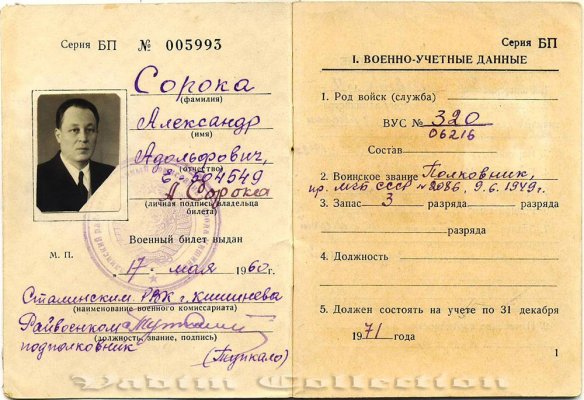 Серия БП № 005993
Сорока
(фамилия)
Александр
(имя)
Адольфович,
(отчество)
Е-504549
А. Сорока
(личная подпись владельца
билета)
Военный билет выдан
М. П.
„17“ мая 1960 г.
Сталинским РВК г. Кишинева
(наименование военного комиссариата)
Райвоенком
(должность, звание, подпись)
подполковник (Тупкало)
Серия БП
I. ВОЕННО-УЧЕТНЫЕ ДАННЫЕ
1. Род войск (служба)
ВУС № 320
06216
Состав
2. Воинское звание Полковник,
пр. МГБ СССР № 2086, 9.6.1949г.
3. Запас 3 разряда разряда
разряда
4. Должность
5. Должен состоять на учете по 31 декабря
1971 года
1
Vadim Collection